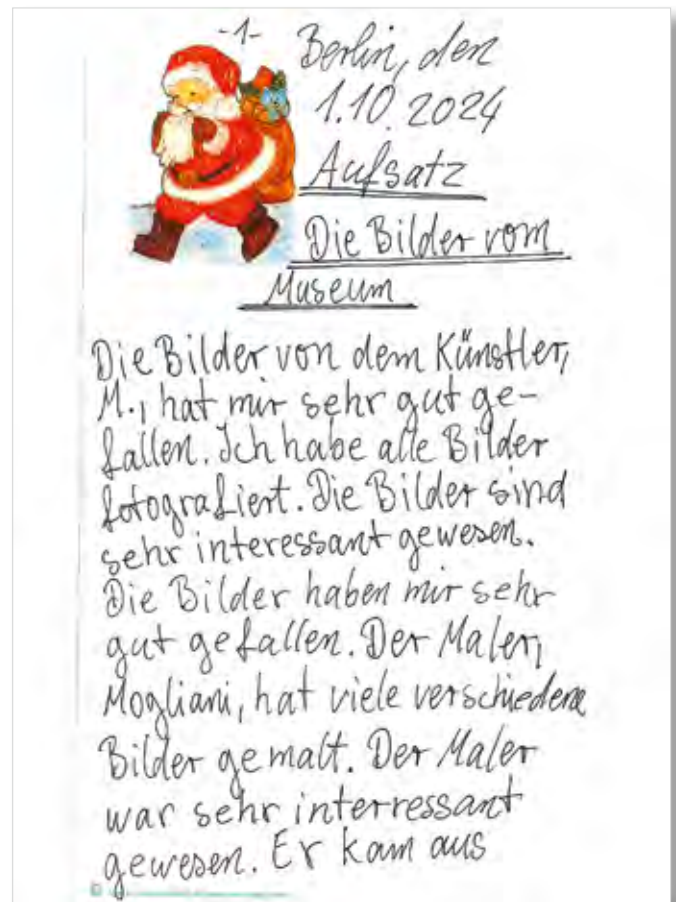 -1-
Berlin, den
1.10.2024
Aufsatz
Die Bilder vom
Museum
Die Bilder von dem Künstler,
M., hat mir sehr gut ge-
fallen. Ich habe alle Bilder
fotografiert. Die Bilder sind
sehr interessant gewesen.
Die Bilder haben mir sehr
gut gefallen. Der Maler,
Mogliani, hat viele verschiedene
Bilder gemalt. Der Maler
war sehr interressant
gewesen. Er kam aus